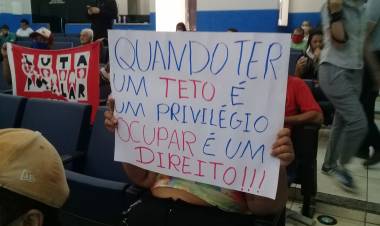 LUTA
POPULAR
QUANDO TER
UM TETO É
UM PRIVILÉGIO
OCUPAR É UM
DIREITO!!!